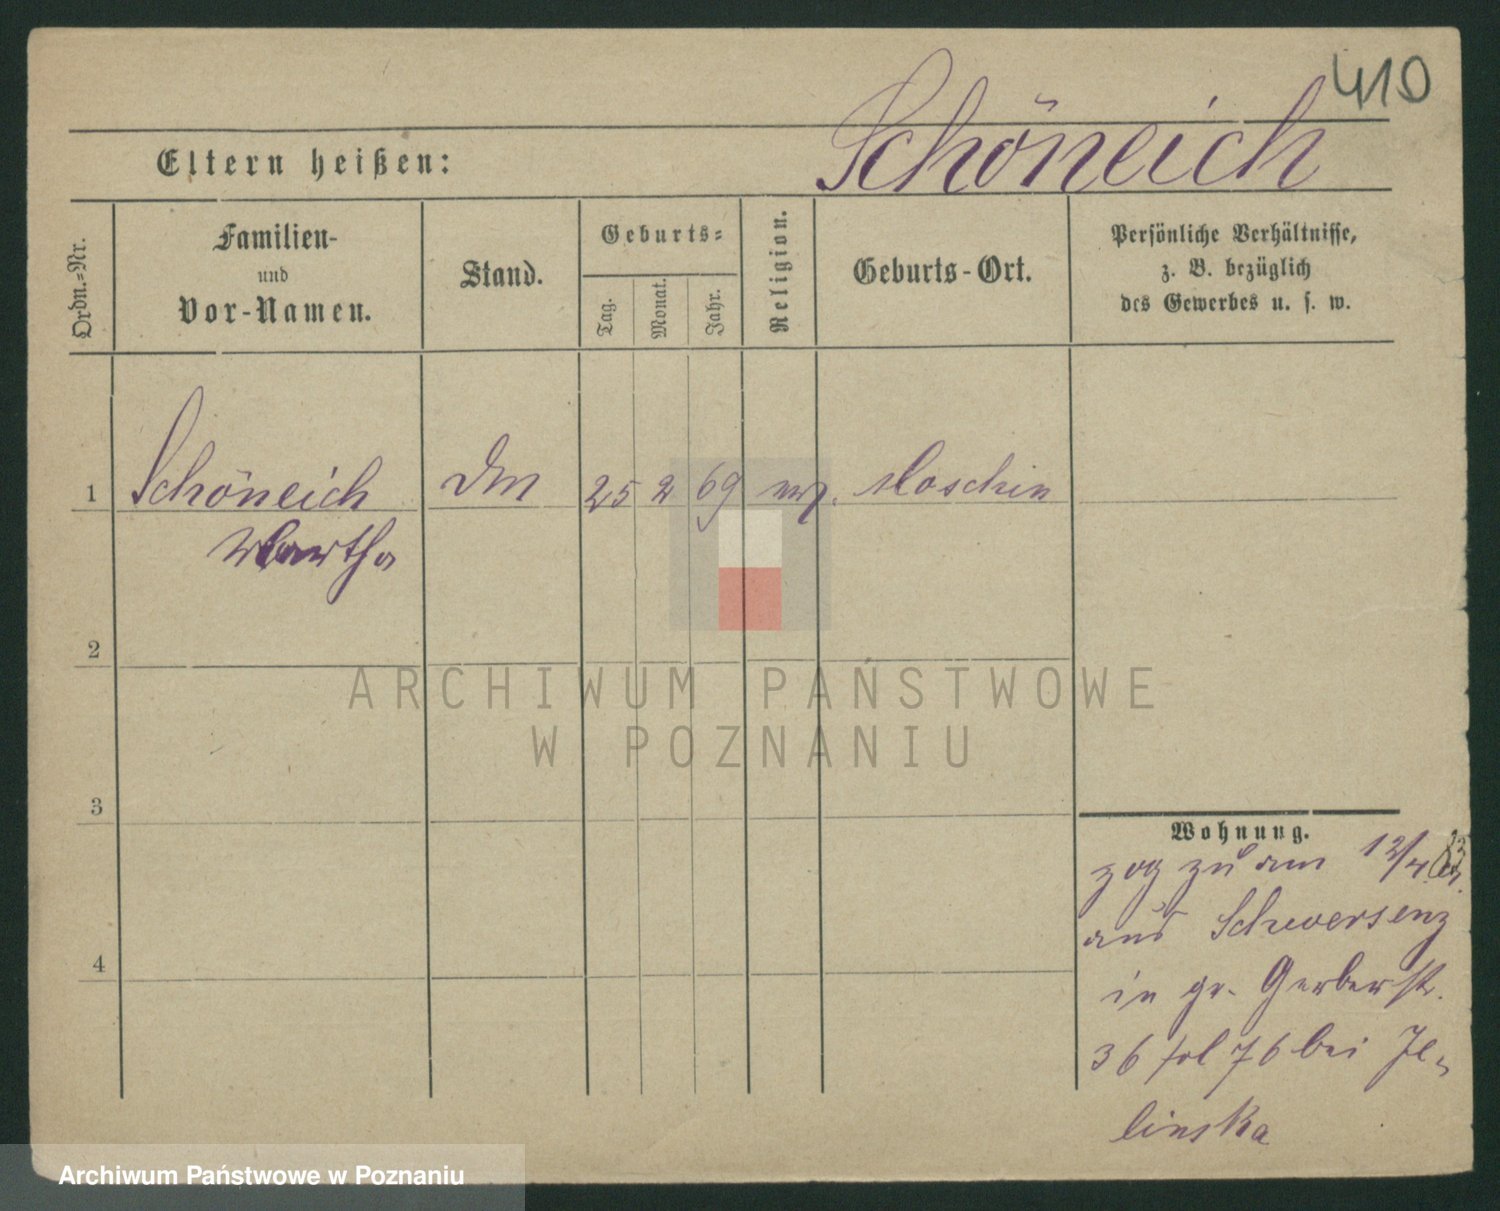 410
Schöneich
Eltern heißen:
Ordn.-Nr.
Familien-
und
Vor-Namen.
Stand.
Geburts-
Tag.
Monat.
Jahr.
Religion.
Geburts-Ort.
Persönliche Verhältnisse,
z. B. bezüglich
des Gewerbes u. s. w.
1
Schöneich
25 2 69
Moschin
Martha
2
ARCHIWUM PAŃSTWOWE
W POZNANIU
3
Wohnung.
zog zu am 12/4
aus Schwersenz
in gr. Gerberstr.
4
36 fol 76 bei Je-
linska
Archiwum Państwowe w Poznaniu